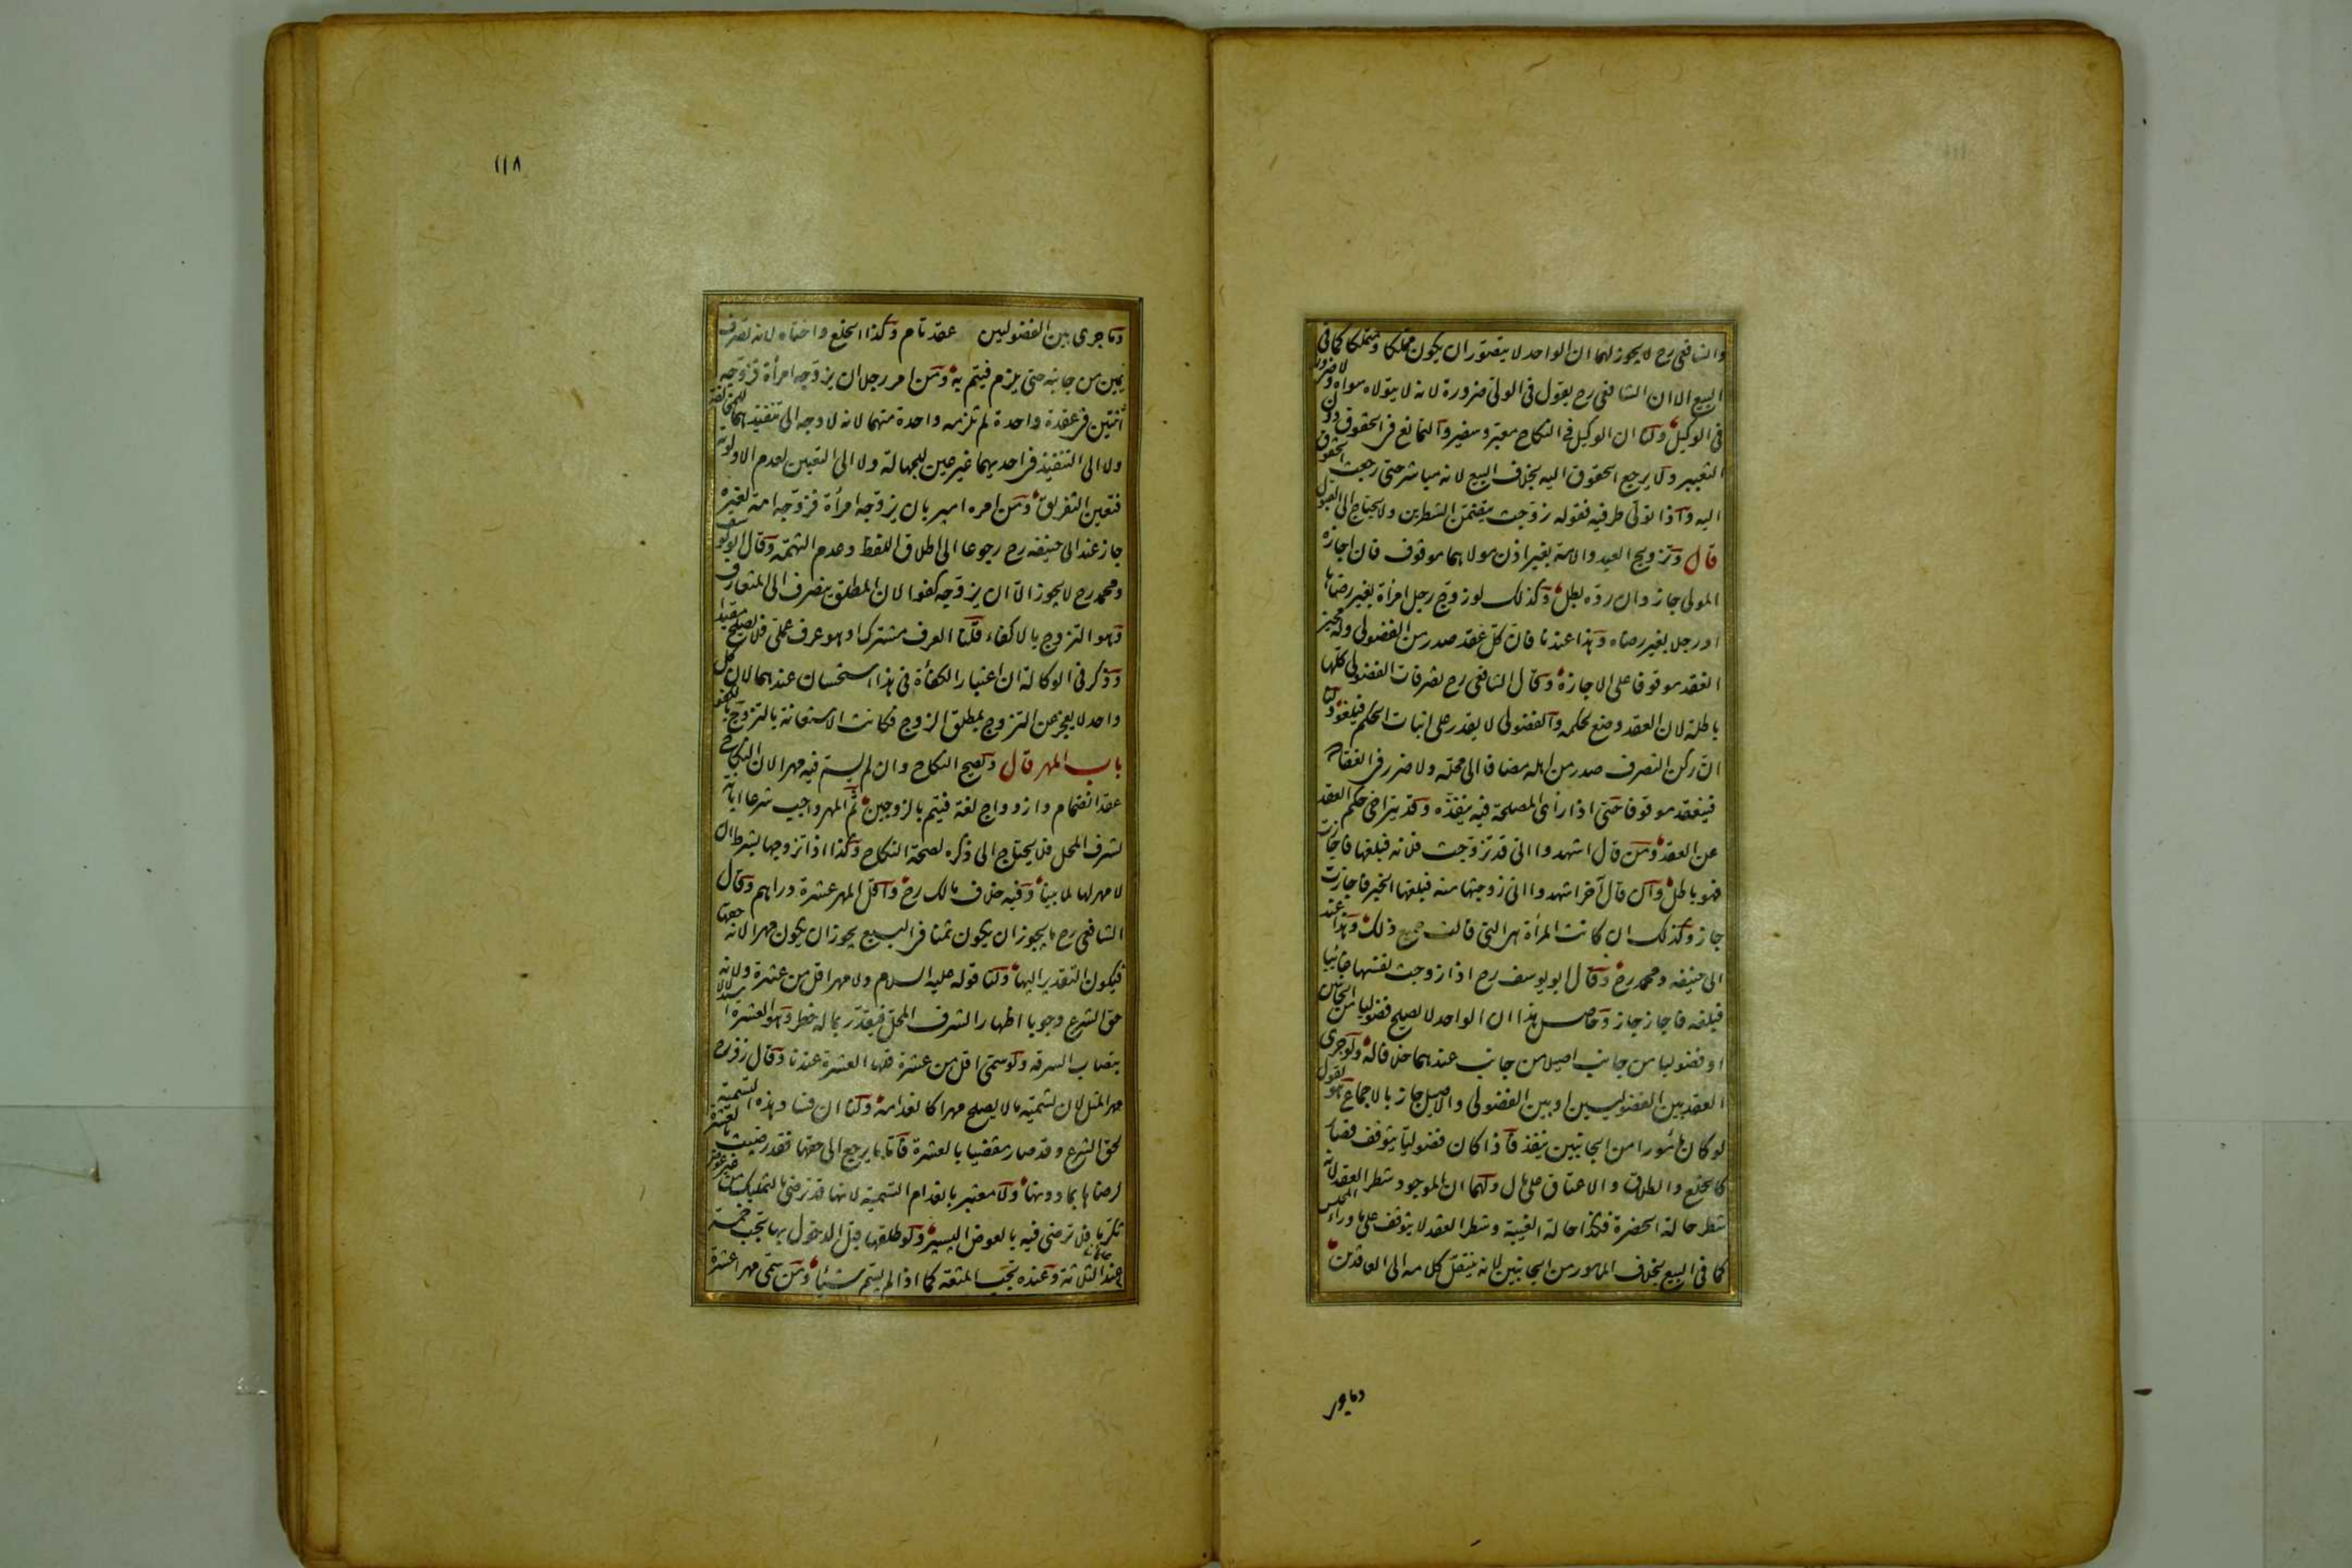 والشافعي رح لا يجوز لهما ان الواحد لا يتصور ان يكون مملكا ومتملكا كما في
البيع الا ان الشافعي رح يقول في الولي ضرورة لانه لا يتولاه سواه ولا ضرورة
في الوكيل ولنا ان الوكيل في النكاح معبر وسفير والتمانع في الحقوق دون
التعبير ولا يرجع الحقوق اليه بخلاف البيع لانه مباشر حتى رجعت الحقوق
اليه واذا تولى طرفيه فقوله زوجت يتضمن الشطرين ولا يحتاج الى القبول
قال وتزويج العبد والامة بغير اذن مولاهما موقوف فان اجازه
المولى جاز وان رده بطل وكذلك لو زوج رجل امرأة بغير رضاها
او رجلا بغير رضاه وهذا عندنا فان كل عقد صدر من الفضولي وله مجيز
انعقد موقوفا على الاجازة وقال الشافعي رح تصرفات الفضولي كلها
باطلة لان العقد وضع لحكمه والفضولي لا يقدر على اثبات الحكم فيلغو ولنا
ان ركن التصرف صدر من اهله مضافا الى محله ولا ضرر في انعقاده
فينعقد موقوفا حتى اذا رأى المصلحة فيه ينفذه وقد يتراخى حكم العقد
عن العقد ومن قال اشهدوا اني قد تزوجت فلانه فبلغها فاجازت
فهو باطل وان قال آخر اشهدوا اني زوجتها منه فبلغها الخبر فاجازت
جاز وكذلك ان كانت المرأة هى التي قالت جميع ذلك وهذا عند
ابي حنيفه ومحمد رح وقال ابو يوسف رح اذا زوجت نفسها غائبا
فبلغه فاجاز جاز وحاصل هذا ان الواحد لا يصلح فضوليا من الجانبين
او فضوليا من جانب اصيلا من جانب عندهما خلافا له ولو جرى
العقد بين الفضوليين او بين الفضولي والاصيل جاز بالاجماع هو يقول
لو كان مأمورا من الجانبين ينفذ فاذا كان فضوليا يتوقف فصار
كالخلع والطلاق والاعتاق على مال ولهما ان الموجود شطر العقد لانه
شطر حالة الحضرة فكذا حالة الغيبة وشطر العقد لا يتوقف على ما وراء المجلس
كما في البيع بخلاف المامور من الجانبين لانه ينتقل كلامه الى العاقدين
وما جرى
١١٨
وما جرى بين الفضوليين عقد تام وكذا الخلع واختاه لانه تصرف
يمين من جانبه حتى يلزم فيتم به ومن امر رجلا ان يزوجه امرأة فزوجه
اثنتين في عقدة واحدة لم تلزمه واحدة منهما لانه لا وجه الى تنفيذهما للمخالفة
ولا الى التنفيذ في احديهما غير عين للجهالة ولا الى التعيين لعدم الاولوية
فتعين التفريق ومن امره امير بان يزوجه امرأة فزوجه امة لغيره
جاز عند ابي حنيفه رح رجوعا الى اطلاق اللفظ وعدم التهمة وقال ابو يوسف
ومحمد رح لا يجوز الا ان يزوجه كفوا لان المطلق ينصرف الى المتعارف
وهو التزوج بالاكفاء قلنا العرف مشترك او هو عرف عملي فلا يصلح مقيدا
وذكر في الوكالة ان اعتبار الكفأة في هذا استحسان عندهما لان كل
واحد لا يعجز عن التزوج بمطلق الزوج فكانت الاستعانة بالتزوج بالكفو
باب المهر قال ويصح النكاح وان لم يسم فيه مهرا لان النكاح
عقد انضمام وازدواج لغة فيتم بالزوجين ثم المهر واجب شرعا ابانة
لشرف المحل فلا يحتاج الى ذكره لصحة النكاح وكذا اذا تزوجها بشرط ان
لا مهر لها لما بينا وفيه خلاف مالك رح واقل المهر عشرة دراهم وقال
الشافعي رح ما يجوز ان يكون ثمنا في البيع يجوز ان يكون مهرا لانه حقها
فيكون التقدير اليها ولنا قوله عليه السلام ولا مهر اقل من عشرة ولانه
حق الشرع وجوبا اظهارا لشرف المحل فيقدر بما له خطر وهو العشرة استدلالا
بنصاب السرقه ولو سمى اقل من عشرة فلها العشرة عندنا وقال زفر رح
مهر المثل لان تسمية ما لا يصلح مهرا كانعدامه ولنا ان فساد هذه التسمية
لحق الشرع وقد صار مقضيا بالعشرة فاما ما يرجع الى حقها فقد رضيت بالعشرة
لرضاها بما دونها ولا معتبر بانعدام التسمية لانها قد ترضى بالتمليك من غير عوض
تكرما فلا ترضى فيه بالعوض اليسير ولو طلقها قبل الدخول بها تجب خمسة
عند الثلاثة وعنده تجب المتعة كما اذا لم يسم شيئا ومن سمى مهرا عشرة